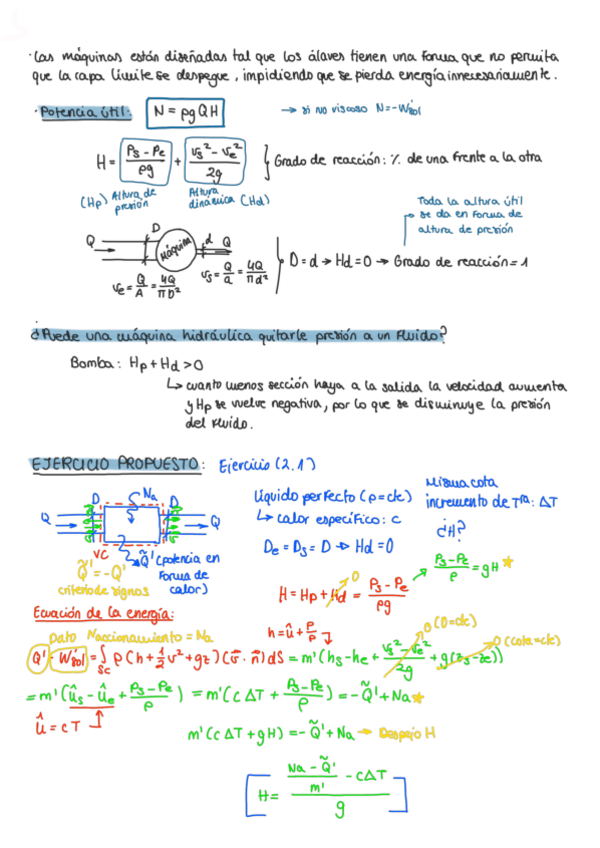 · Las máquinas están diseñadas tal que los álaves tienen una forma que no permita
que la capa límite se despegue, impidiendo que se pierda energía innecesariamente.
· Potencia útil: N = ρgQH → si no viscoso N = -W'sol
H = (Ps - Pe)/ρg + (vs² - ve²)/2g } Grado de reacción: % de una frente a la otra
(Hp) Altura de presión
Altura dinámica (Hd)
Toda la altura útil
se da en forma de
altura de presión
Q D Máquina d Q
ve = Q/A = 4Q/πD² vs = Q/a = 4Q/πd² } D = d → Hd = 0 → Grado de reacción = 1
¿Puede una máquina hidráulica quitarle presión a un fluido?
Bomba: Hp + Hd > 0
↳ cuanto menos sección haya a la salida la velocidad aumenta
y Hp se vuelve negativa, por lo que se disminuye la presión
del fluido.
EJERCICIO PROPUESTO: Ejercicio (2.1)
Q D Na D Q
VC
Q̃' (potencia en
forma de
calor)
Q̃' = -Q'
criterio de signos
Líquido perfecto (ρ = cte)
↳ calor específico: c
De = Ds = D → Hd = 0
Misma cota
incremento de Tra: ΔT
¿H?
H = Hp + Hd = (Ps - Pe)/ρg
0
(Ps - Pe)/ρ = gH *
Ecuación de la energía:
h = û + P/ρ
dato Naccionamiento = Na
Q' - W'sol = ∫sc ρ(h + 1/2 v² + gz)(v̄ · n̄)dS = m'(hs - he + (vs² - ve²)/2g + g(zs - ze))
0 (D = cte)
0 (cota = cte)
= m'(ûs - ûe + (Ps - Pe)/ρ) = m'(cΔT + (Ps - Pe)/ρ) = -Q̃' + Na *
û = cT
m'(cΔT + gH) = -Q̃' + Na → Despejo H
[ H = ((Na - Q̃')/m' - cΔT)/g ]